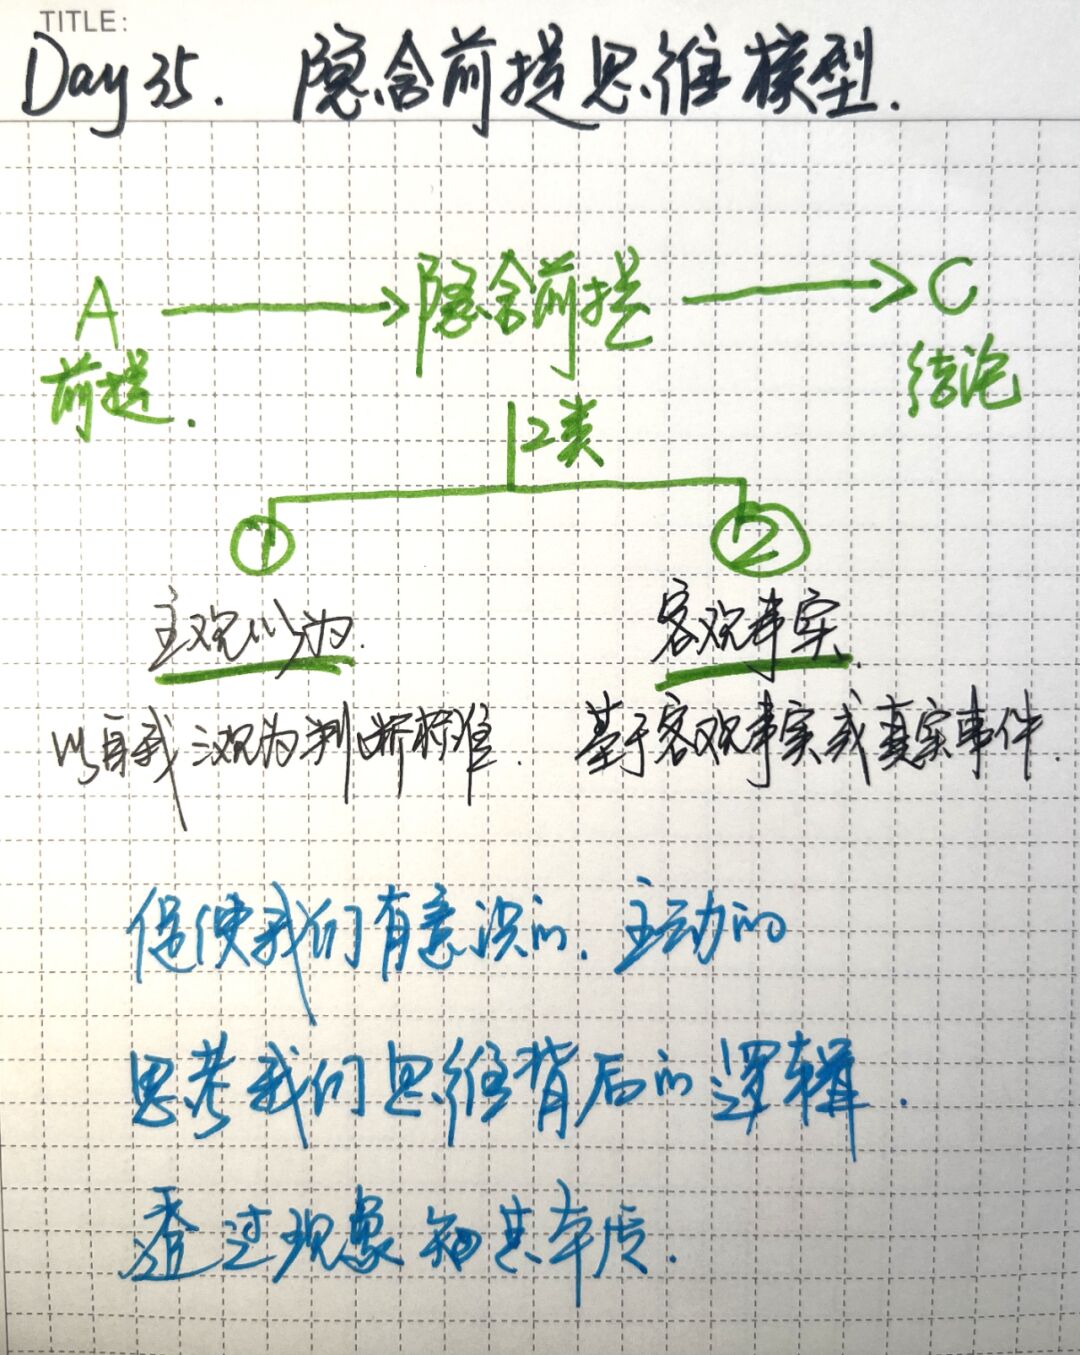 TITLE:
Day 35. 隐含前提思维模型.
A → 隐含前提 → C
前提. 结论
2类
① ②
主观以为. 客观事实.
以自我主观为判断标准. 基于客观事实或真实事件.
促使我们有意识的.主动的
思考我们思维背后的逻辑.
透过现象知其本质.